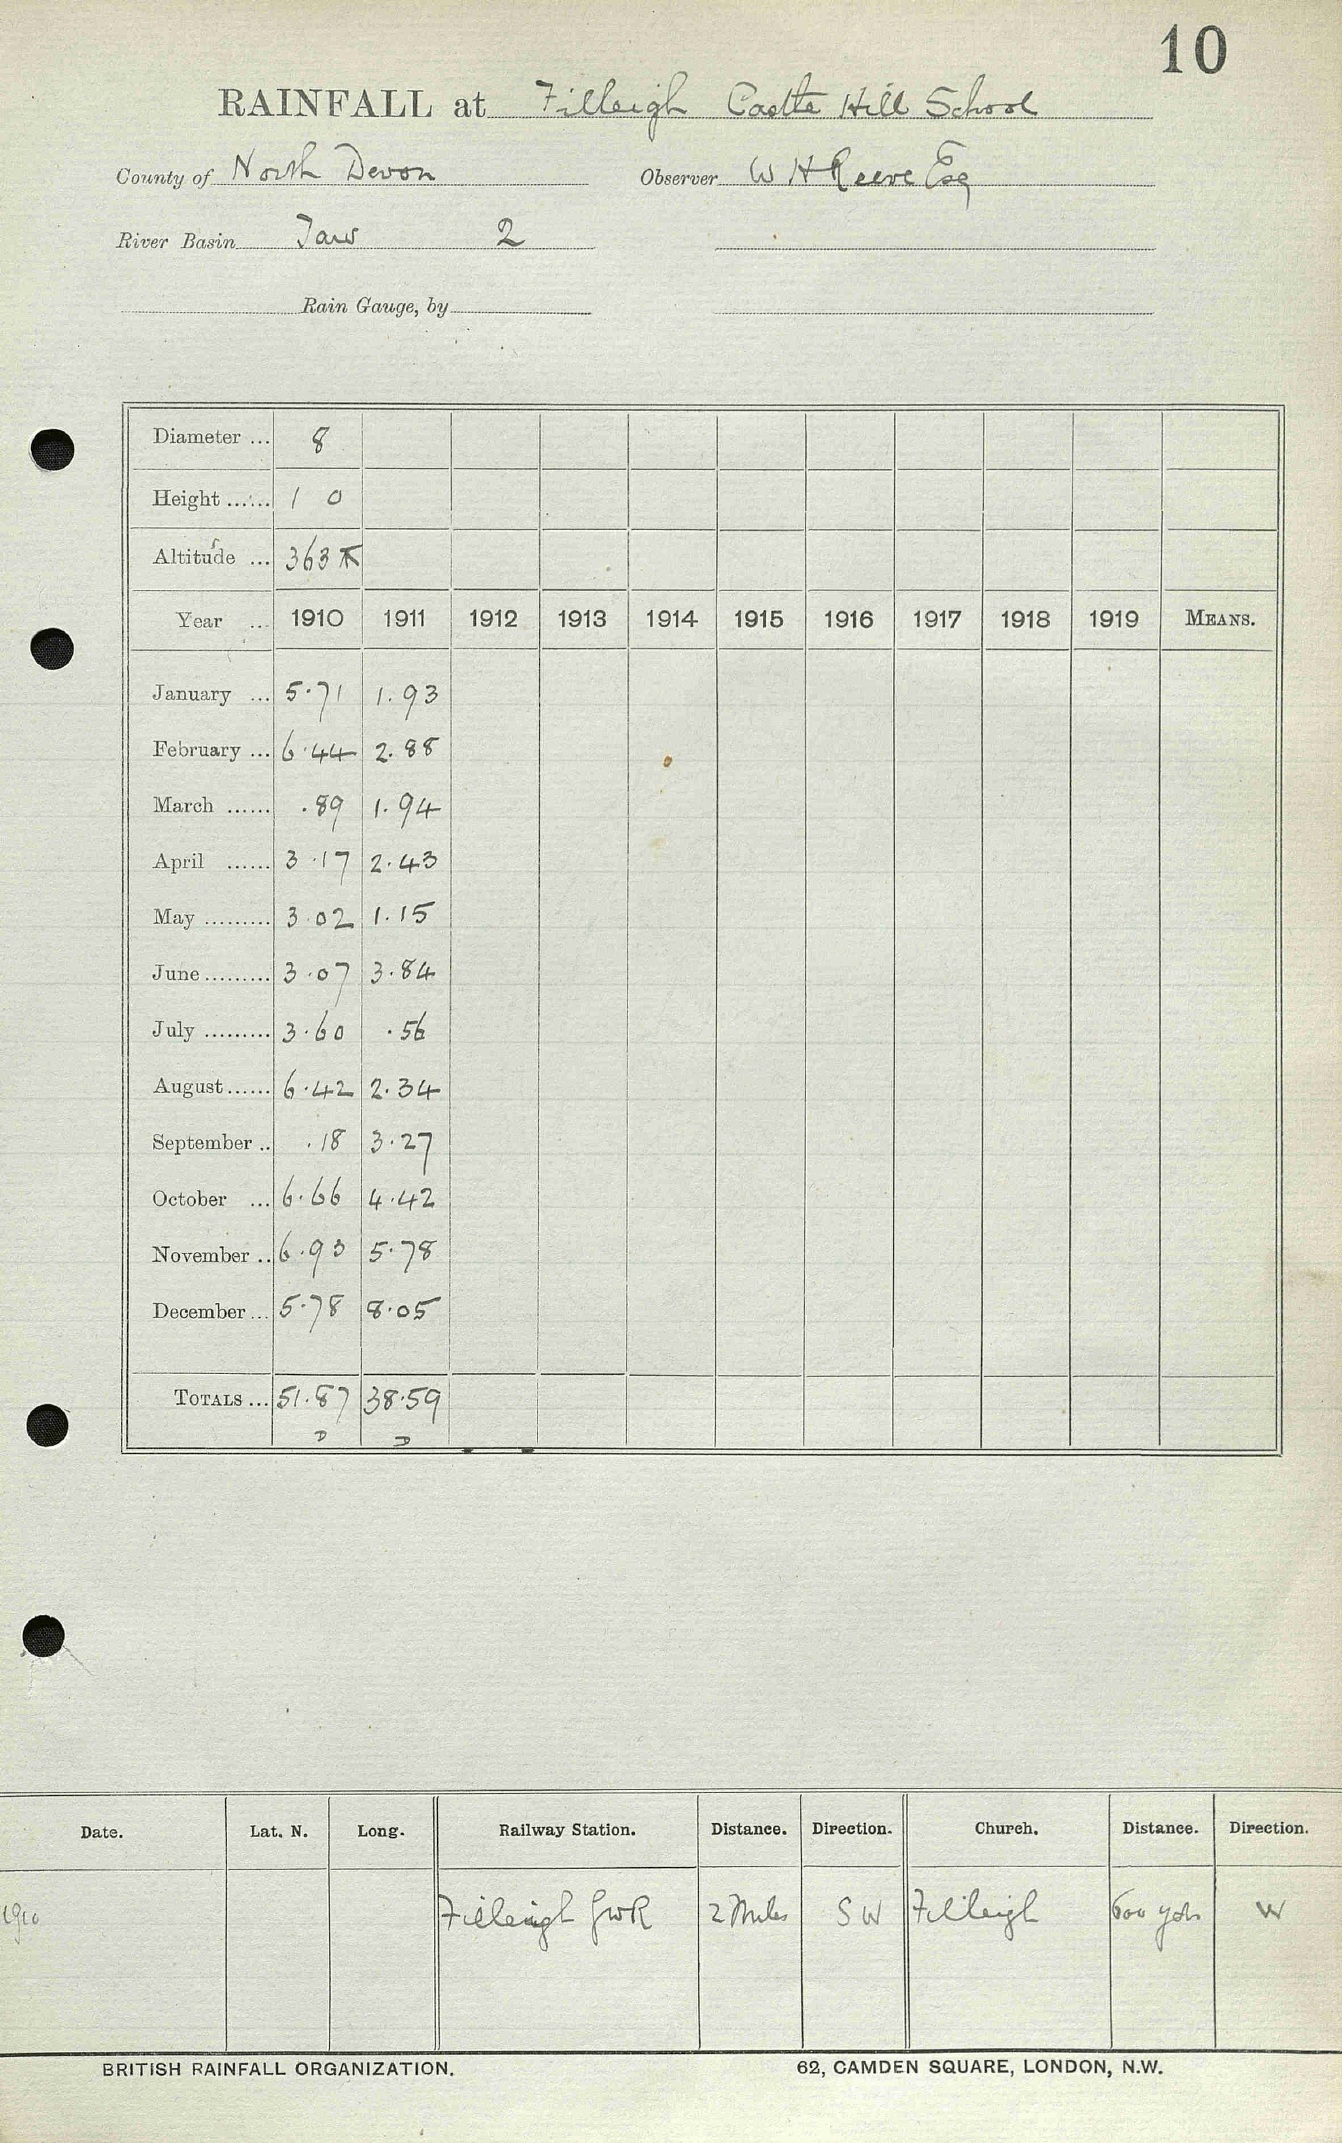 10
RAINFALL at Filleigh Castle Hill School
County of North Devon Observer W H Reeve Esq
River Basin Taw 2
Rain Gauge, by
Diameter ... 8
Height ...... 1 0
Altitude ... 363
Year ... 1910 1911 1912 1913 1914 1915 1916 1917 1918 1919 MEANS.
January ... 5.71 1.93
February ... 6.44 2.88
March ...... .89 1.94
April ...... 3.17 2.43
May ......... 3.02 1.15
June ......... 3.07 3.84
July ......... 3.60 .56
August ...... 6.42 2.34
September .. .18 3.27
October ... 6.66 4.42
November .. 6.93 5.78
December ... 5.78 8.05
TOTALS ... 51.87 38.59
D D
Date. Lat. N. Long. Railway Station. Distance. Direction. Church. Distance. Direction.
1910 Filleigh GWR 2 Miles SW Filleigh 600 yds W
BRITISH RAINFALL ORGANIZATION. 62, CAMDEN SQUARE, LONDON, N.W.